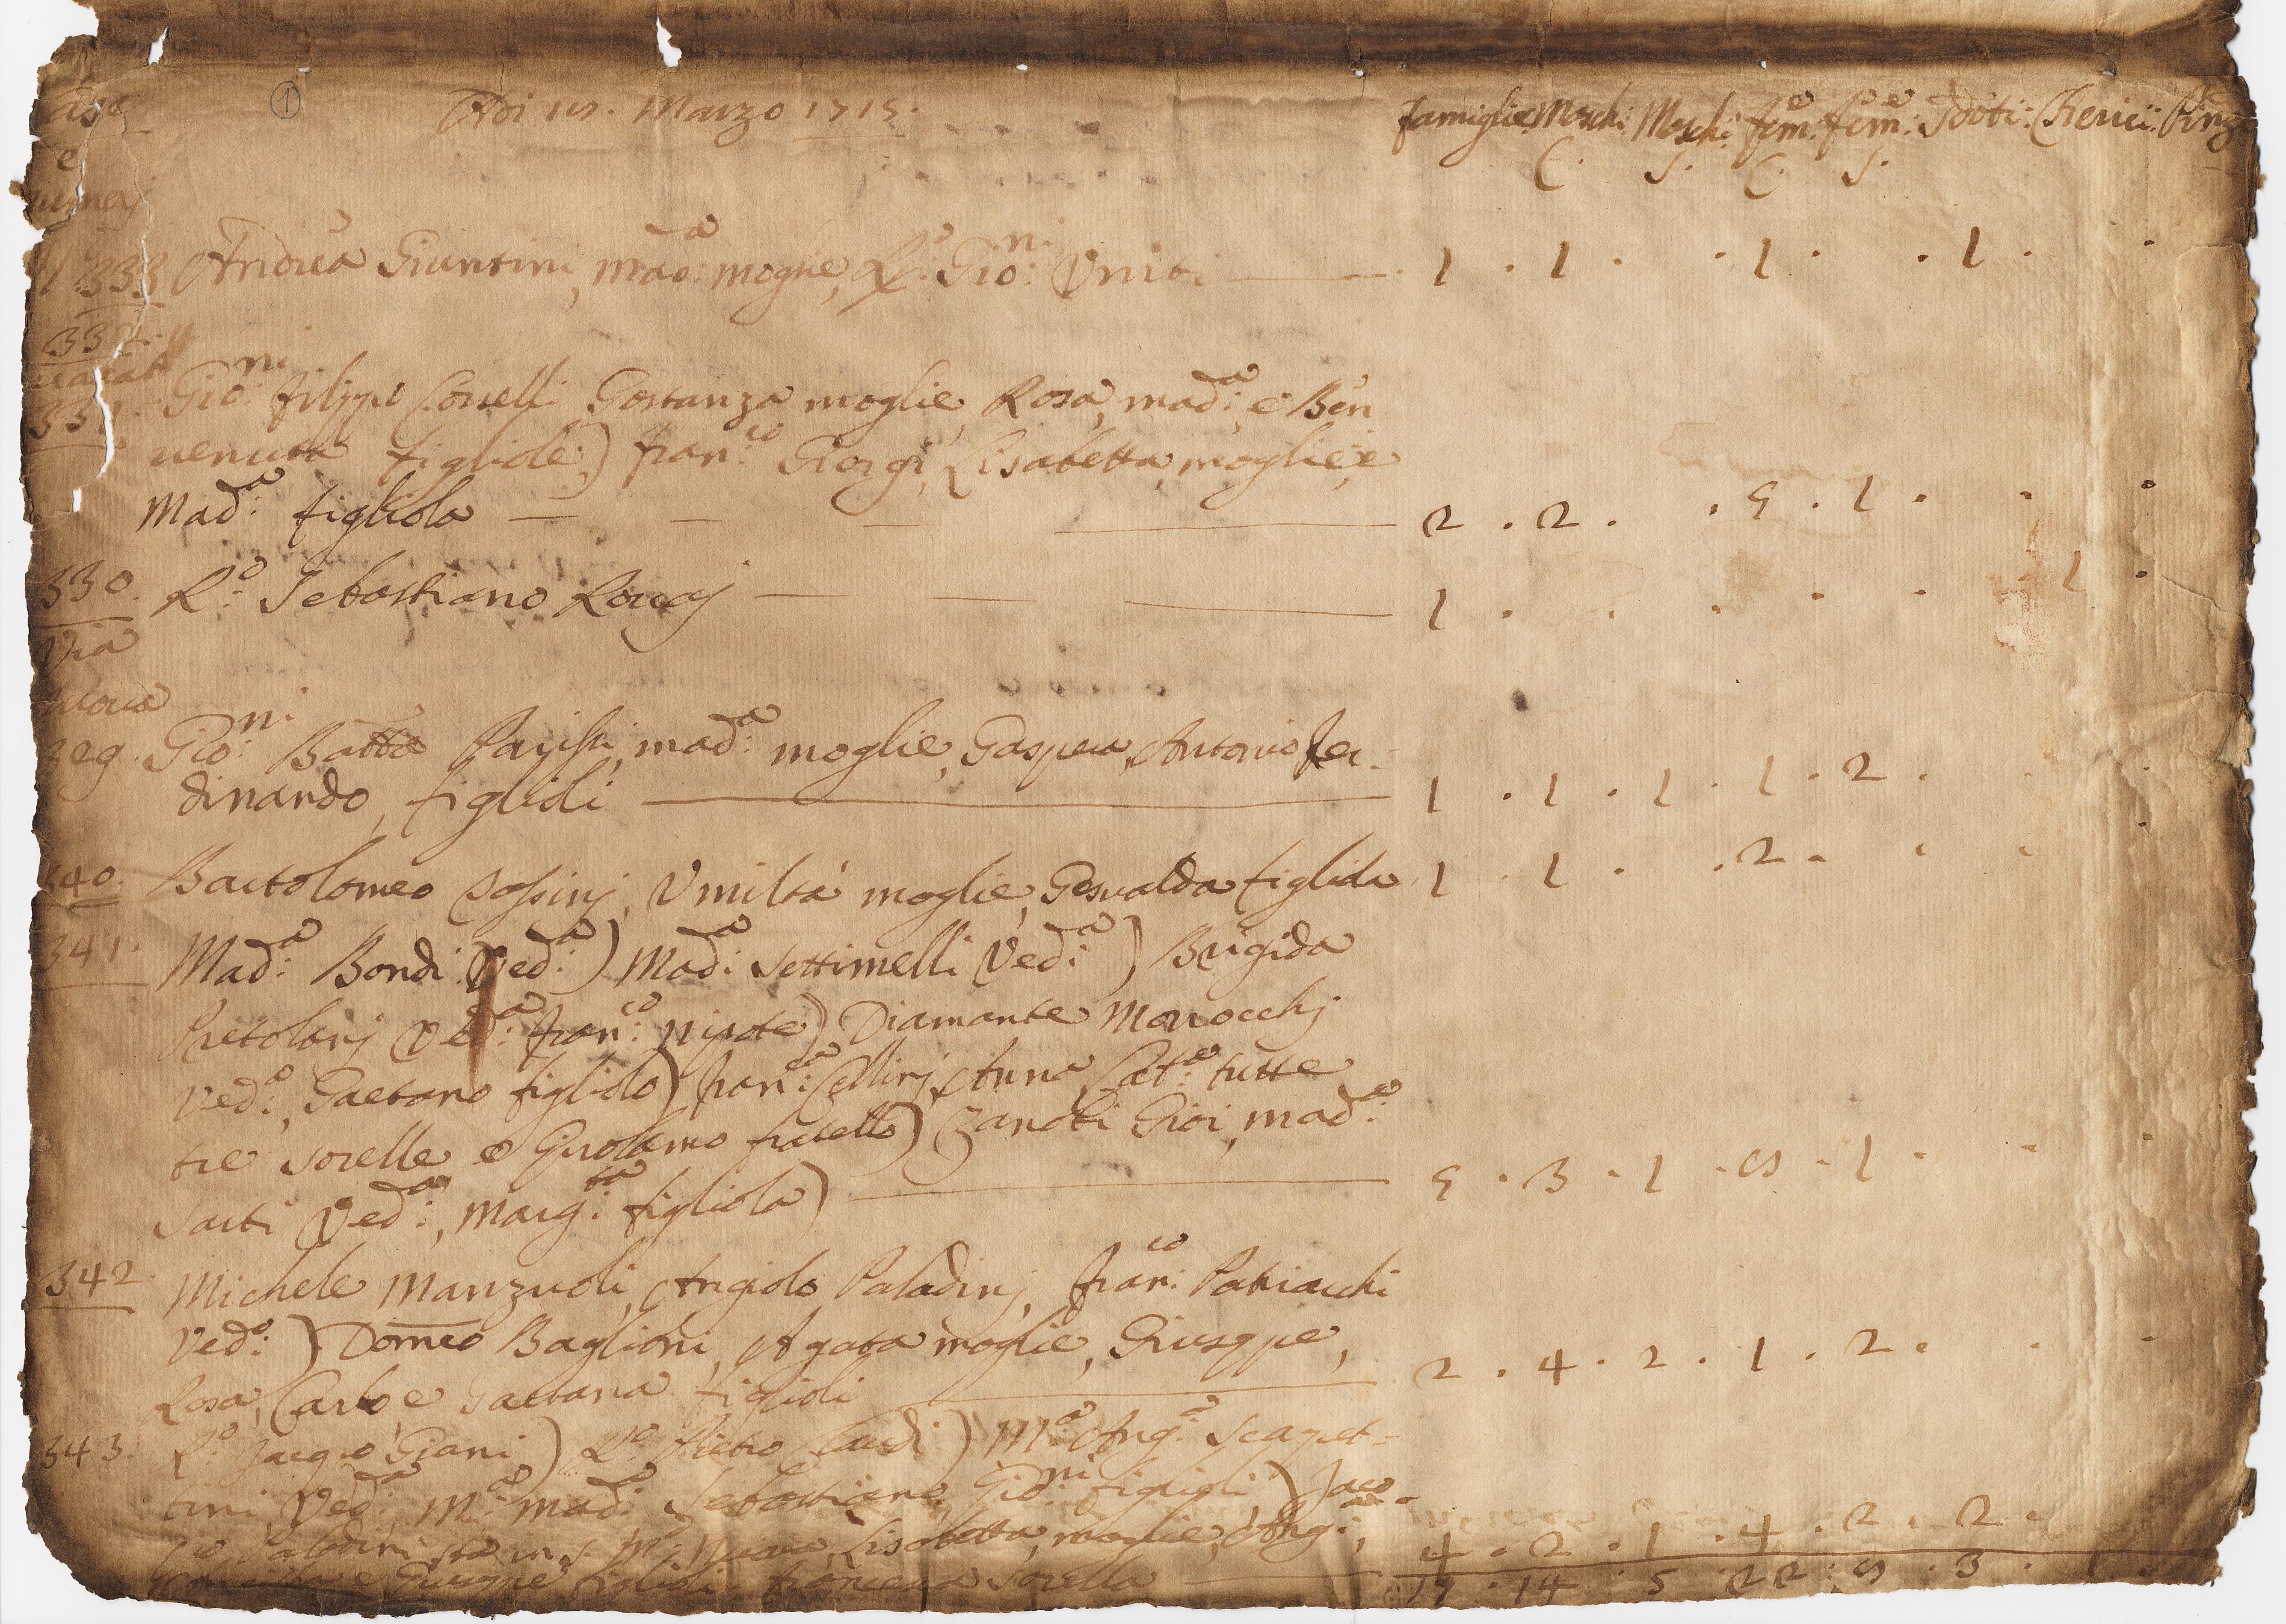 Case
e
numerj
①
Adi 19. Marzo 1715.
famiglie Maschi: Maschi fem:e fem:e Sdoti: Cherici: Pinz
C. S. C. S.
333 Andrea Giuntini, mad:a moglie, R:o Gio:ni Vniti 1 . 1 . . 1 . . 1 .
332.
331. Gio:ni filippo Corselli Gostanza moglie, Rosa, mad:a e Ben
uenuta figliole) fran:co Giorgi, Lisabetta, moglie, e
Mad:a figliola 2 . 2 . . 5 . 1 .
330. R:o Sebastiano 1 . . . . . 1 .
Via
nuoua
329. Gio:ni Batta mad:a moglie, Gaspera, Antonio fer-
dinando, figlioli 1 . 1 . 1 . 1 . 2 .
340. Bartolomeo Vmiltà moglie, Gesualda figliola 1 . 1 . . 2 .
341. Mad:a Bondi Ved:a) Mad:a Settimelli Ved:a) Brigida
Ved:a fran:co nipote) Diamante Morrocchj
Ved:a, Gaetano figliolo) fran:a Cellinj, Anna, Cat:a tutte
tre sorelle e Girolamo fratello) Zanobi Gioi, mad:a
Sarti Ved:a, Marg:ta figliola) 5 . 3 . 1 . 9 . 1 .
342. Michele Manzuoli, Angiolo Paladinj, fran:co Patriarchi
Ved:o) Domco Baglioni, Agata moglie, Giuseppe,
Rosa, Carlo e Gaetana figlioli 2 . 4 . 2 . 1 . 2 .
343. R:o Jacopo Giani) R:o Pietro Landi) M:a Ang:a Scapet-
tini Ved:a, M:a mad:a Sebastiano, Gio:ni figlioli) Jaco-
po Paladini sta in S. M: Nuoua, Lisabetta, moglie, Ang:a, 4 . 2 . 1 . 4 . 2 . 2 .
e Giuseppe figlioli, francesca Sorella 17 . 14 . 5 . 22 . 9 . 3 . 1